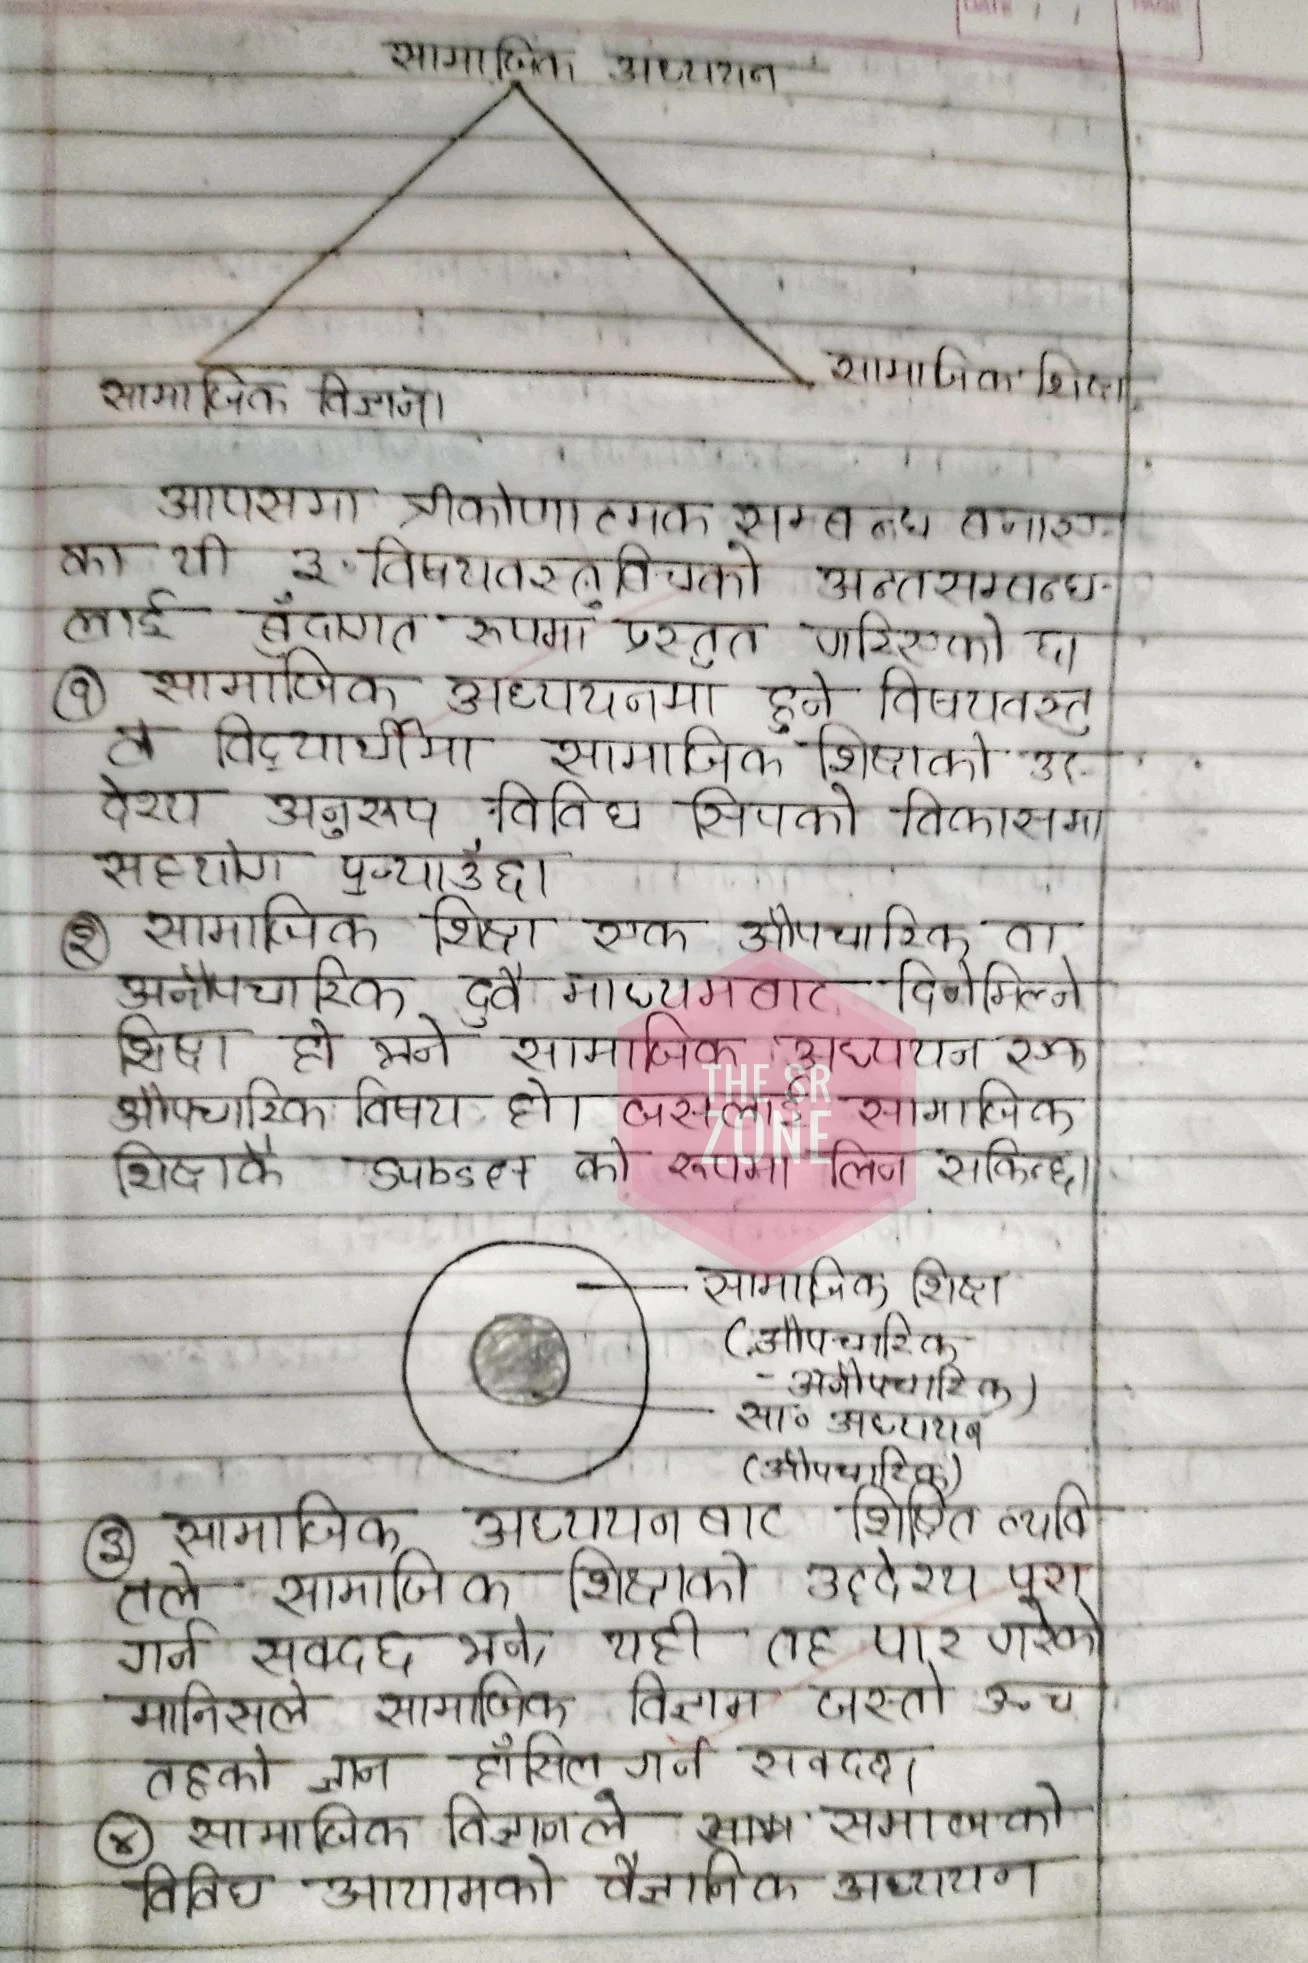 DATE / / PAGE
सामाजिक अध्ययन
सामाजिक शिक्षा
सामाजिक विज्ञान।
आपसमा त्रीकोणात्मक सम्बन्ध बनाए-
का यी ३ विषयवस्तु विचको अन्तसम्बन्ध-
लाई बुँदागत रूपमा प्रस्तुत गरिएको छ।
१ सामाजिक अध्ययनमा हुने विषयवस्तु
ले विद्यार्थीमा सामाजिक शिक्षाको उद्-
देश्य अनुरूप विविध सिपको विकासमा
सहयोग पुऱ्याउँछ।
२ सामाजिक शिक्षा एक औपचारिक वा
अनौपचारिक दुवै माध्यमबाट दिने मिल्ने
शिक्षा हो भने सामाजिक अध्ययन एक
औपचारिक विषय हो। जसलाई सामाजिक
शिक्षाकै subset को रूपमा लिन सकिन्छ।
THE SR
ZONE
सामाजिक शिक्षा
(औपचारिक
- अनौपचारिक)
सा० अध्ययन
(औपचारिक)
३ सामाजिक अध्ययनबाट शिक्षित व्यक्ति
तले सामाजिक शिक्षाको उद्देश्य पूरा
गर्न सक्दछ भने, यही तह पार गरेको
मानिसले सामाजिक विज्ञान जस्तो उच्च
तहको ज्ञान हाँसिल गर्न सक्दछ।
४ सामाजिक विज्ञानले समाजको
विविध आयामको वैज्ञानिक अध्ययन